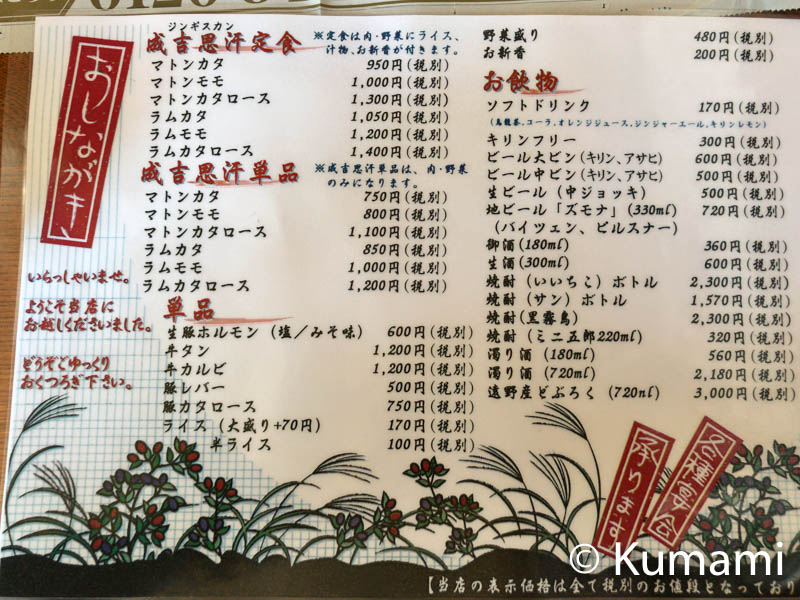 おしながき
いらっしゃいませ。
ようこそ当店に
お越しくださいました。
どうぞごゆっくり
おくつろぎ下さい。
ジンギスカン
成吉思汗定食
※定食は肉・野菜にライス、
汁物、お新香が付きます。
マトンカタ 950円(税別)
マトンモモ 1,000円(税別)
マトンカタロース 1,300円(税別)
ラムカタ 1,050円(税別)
ラムモモ 1,200円(税別)
ラムカタロース 1,400円(税別)
成吉思汗単品
※成吉思汗単品は、肉・野菜
のみになります。
マトンカタ 750円(税別)
マトンモモ 800円(税別)
マトンカタロース 1,100円(税別)
ラムカタ 850円(税別)
ラムモモ 1,000円(税別)
ラムカタロース 1,200円(税別)
単品
生豚ホルモン(塩/みそ味) 600円(税別)
牛タン 1,200円(税別)
牛カルビ 1,200円(税別)
豚レバー 500円(税別)
豚カタロース 750円(税別)
ライス(大盛り+70円) 170円(税別)
半ライス 100円(税別)
野菜盛り 480円(税別)
お新香 200円(税別)
お飲物
ソフトドリンク 170円(税別)
(烏龍茶,コーラ,オレンジジュース,ジンジャーエール,キリンレモン)
キリンフリー 300円(税別)
ビール大ビン(キリン、アサヒ) 600円(税別)
ビール中ビン(キリン、アサヒ) 500円(税別)
生ビール(中ジョッキ) 500円(税別)
地ビール「ズモナ」(330ml) 720円(税別)
(バイツェン、ピルスナー)
御酒(180ml) 360円(税別)
生酒(300ml) 600円(税別)
焼酎(いいちこ)ボトル 2,300円(税別)
焼酎(サン)ボトル 1,570円(税別)
焼酎(黒霧島) 2,300円(税別)
焼酎(ミニ五郎220ml) 320円(税別)
濁り酒(180ml) 560円(税別)
濁り酒(720ml) 2,180円(税別)
遠野産どぶろく(720ml) 3,000円(税別)
各種宴会
承ります
© Kumami
【当店の表示価格は全て税別のお値段となっており